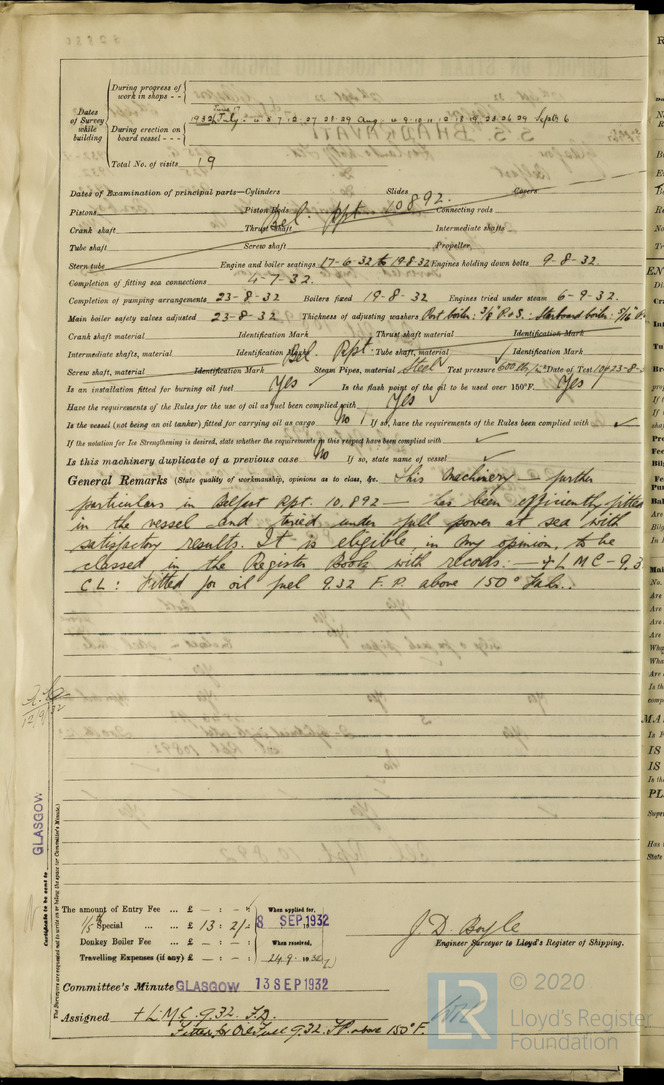 Dates of Survey while building
During progress of work in shops - -
During erection on board vessel - - -
June 17
1932 July. 4 5 7 12 27 28 29 Aug. 4 9 10 11 12 18 19 23 26 29 Sept. 6
Total No. of visits 19
Dates of Examination of principal parts—Cylinders Slides Covers
Pistons Piston Rods Connecting rods
Bel. Rpt 10892.
Crank shaft Thrust shaft Intermediate shafts
Tube shaft Screw shaft Propeller
Stern tube Engine and boiler seatings 17-6-32 to 19 8 32 Engines holding down bolts 9-8-32.
Completion of fitting sea connections 4-7-32.
Completion of pumping arrangements 23-8-32 Boilers fixed 19-8-32 Engines tried under steam 6-9-32.
Main boiler safety valves adjusted 23-8-32 Thickness of adjusting washers Port boiler: 3/8" P&S: Starboard boiler: 5/16" P.
Crank shaft material Identification Mark Thrust shaft material Identification Mark
Intermediate shafts, material Identification Marks Bel. Rpt. Tube shaft, material
Screw shaft, material Identification Mark Steam Pipes, material Steel Test pressure 600 lbs/□" Date of Test 23-8-3
Is an installation fitted for burning oil fuel Yes Is the flash point of the oil to be used over 150°F. Yes
Have the requirements of the Rules for the use of oil as fuel been complied with Yes
Is the vessel (not being an oil tanker) fitted for carrying oil as cargo No If so, have the requirements of the Rules been complied with ✓
If the notation for Ice Strengthening is desired, state whether the requirements in this respect have been complied with ✓
Is this machinery duplicate of a previous case No If so, state name of vessel ✓
General Remarks (State quality of workmanship, opinions as to class, &c. This machinery — further
particulars in Belfast Rpt. 10.892 — has been efficiently fitted
in the vessel and tried under full power at sea with
satisfactory results. It is eligible in my opinion, to be
classed in the Register Book with records: — + LMC - 9.3
CL: Fitted for oil fuel 9.32 F.P. above 150° Fah..
12/9/32
GLASGOW
Certificate to be sent to
The Surveyors are requested not to write on or below the space for Committee's Minute.
The amount of Entry Fee ... £ — : — : When applied for,
1/5th Special ... ... £ 13 : 2 : 8 SEP 1932
Donkey Boiler Fee £ — : — : When received,
Travelling Expenses (if any) £ — : — : 24.9.1932
J. D. Boyle
Engineer Surveyor to Lloyd's Register of Shipping.
Committee's Minute GLASGOW 13 SEP 1932
Assigned + L.M.C. 9.32 F.D.
Fitted for Oil Fuel 9.32. F.P. above 150° F.
LR
© 2020
Lloyd's Register
Foundation